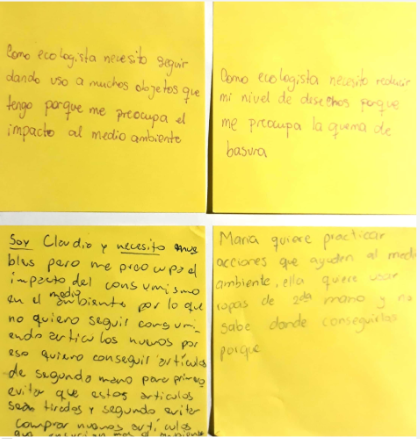 Como ecologista necesito seguir
dando uso a muchos objetos que
tengo porque me preocupa el
impacto al medio ambiente
Como ecologista necesito reducir
mi nivel de desechos porque
me preocupa la quema de
basura
Soy Claudia y necesito mue
bles pero me preocupa el
impacto del consumismo
en el medio ambiente por lo que
no quiero seguir consumi
endo articulos nuevos por
eso quiero conseguir articulos
de segunda mano para primero
evitar que estos articulos
sean tirados y segundo evitar
comprar nuevos articulos
que
Maria quiere practicar
acciones que ayuden al medio
ambiente, ella quiere usar
ropas de 2da mano y no
sabe donde conseguirlas
porque